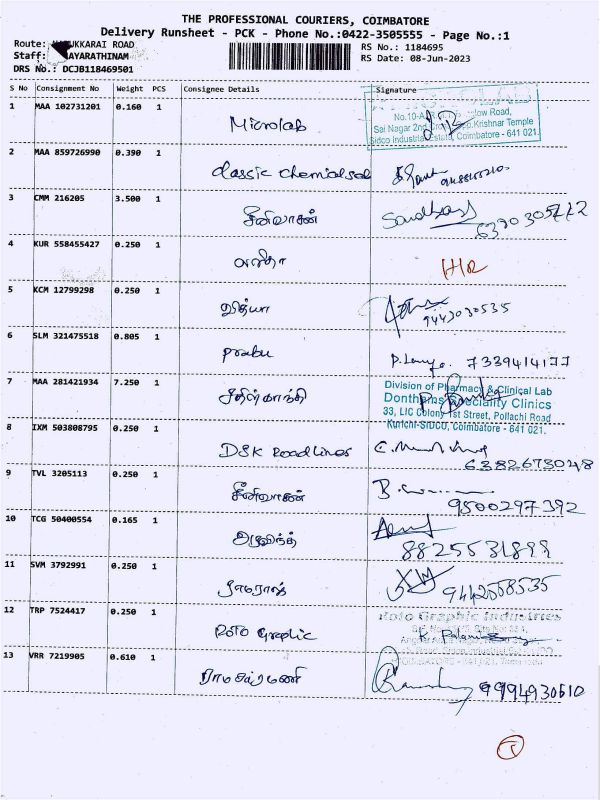 THE PROFESSIONAL COURIERS, COIMBATORE
Delivery Runsheet - PCK - Phone No.:0422-3505555 - Page No.:1
Route: KARAI ROAD
RS No.: 1184695
Staff: AYARATHINAM
RS Date: 08-Jun-2023
DRS No.: DCJB118469501
S No Consignment No Weight PCS Consignee Details Signature
1 MAA 102731201 0.160 1 Microlab
No.10-A, low Road,
Sai Nagar 2nd Cross, Opp.Krishnar Temple
Sidco Industrial Estate, Coimbatore - 641 021.
2 MAA 859726990 0.390 1 classic chemical
3 CMM 216205 3.500 1 சீனிவாசன் 6390305772
4 KUR 558455427 0.250 1 HR
5 KCM 12799298 0.250 1 வித்யா 9443030535
6 SLM 321475518 0.805 1 prabu 7339414177
7 MAA 281421934 7.250 1
Division of Pharmacy & Clinical Lab
Donthams Speciality Clinics
33, LIC Colony 1st Street, Pollachi Road
Kurichi-SIDCO, Coimbatore - 641 021.
8 IXM 503808795 0.250 1 DSK Roadlines 6382673048
9 TVL 3205113 0.250 1 சீனிவாசன் 9500297392
10 TCG 50400554 0.165 1 அரவிந்த் 8825531899
11 SVM 3792991 0.250 1 ராமராஜ் 9442558535
12 TRP 7524417 0.250 1 Roto Graphic
Roto Graphic Industries
K. Palani
13 VRR 7219905 0.610 1 ராமசுப்ரமணி 9994930610